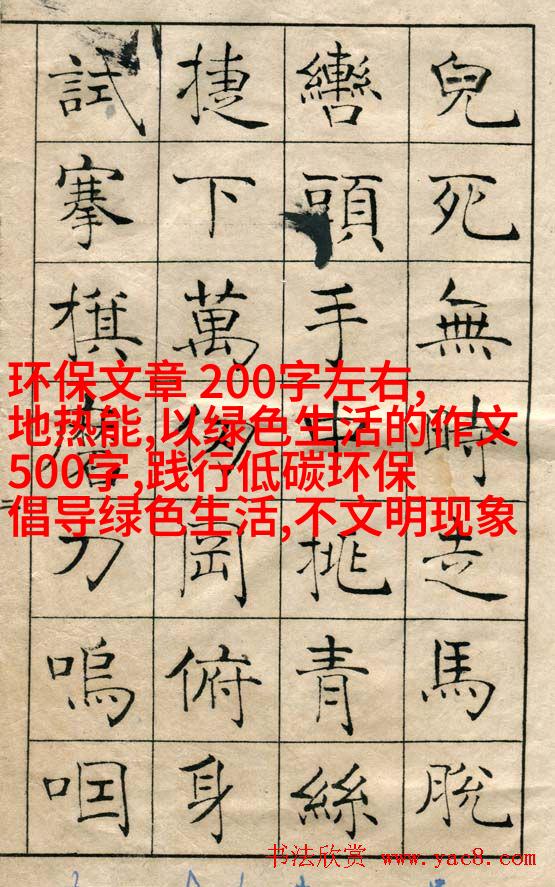 兒死無時走馬脫
轡頭手中挑青絲
捷下萬仞岡俯身
試搴旗磨刀嗚咽
环保文章 200字左右,
地热能,以绿色生活的作文
500字,践行低碳环保
倡导绿色生活,不文明现象
书法欣赏 www.yac8.com